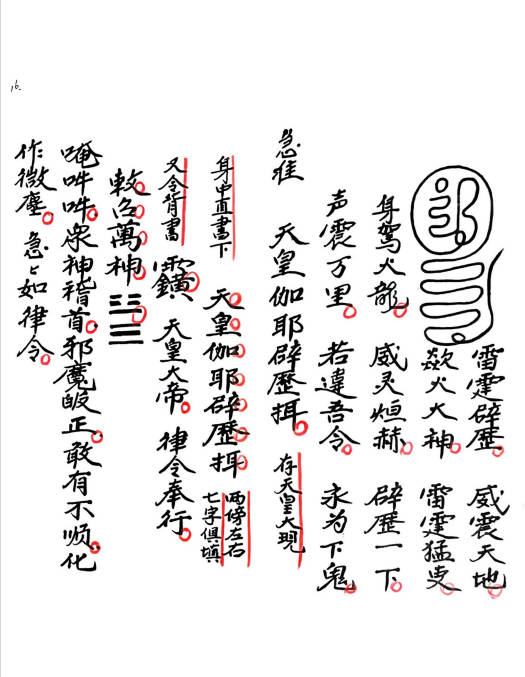 16.
雷霆辟歷。威震天地。
歘火大神。雷霆猛吏。
身驾火龍。威灵烜赫。辟歷一下。
声震万里。若違吾令。永为下鬼。
天皇伽耶辟歷挕。存天皇大現
身中直書下 天皇伽耶辟歷挕 两傍左右
七字俱填
又令背書 天皇大帝。律令奉行。
敕召萬神
唵吽吽。眾神稽首。邪魔皈正。敢有不顺。化
作微塵。急〻如律令。